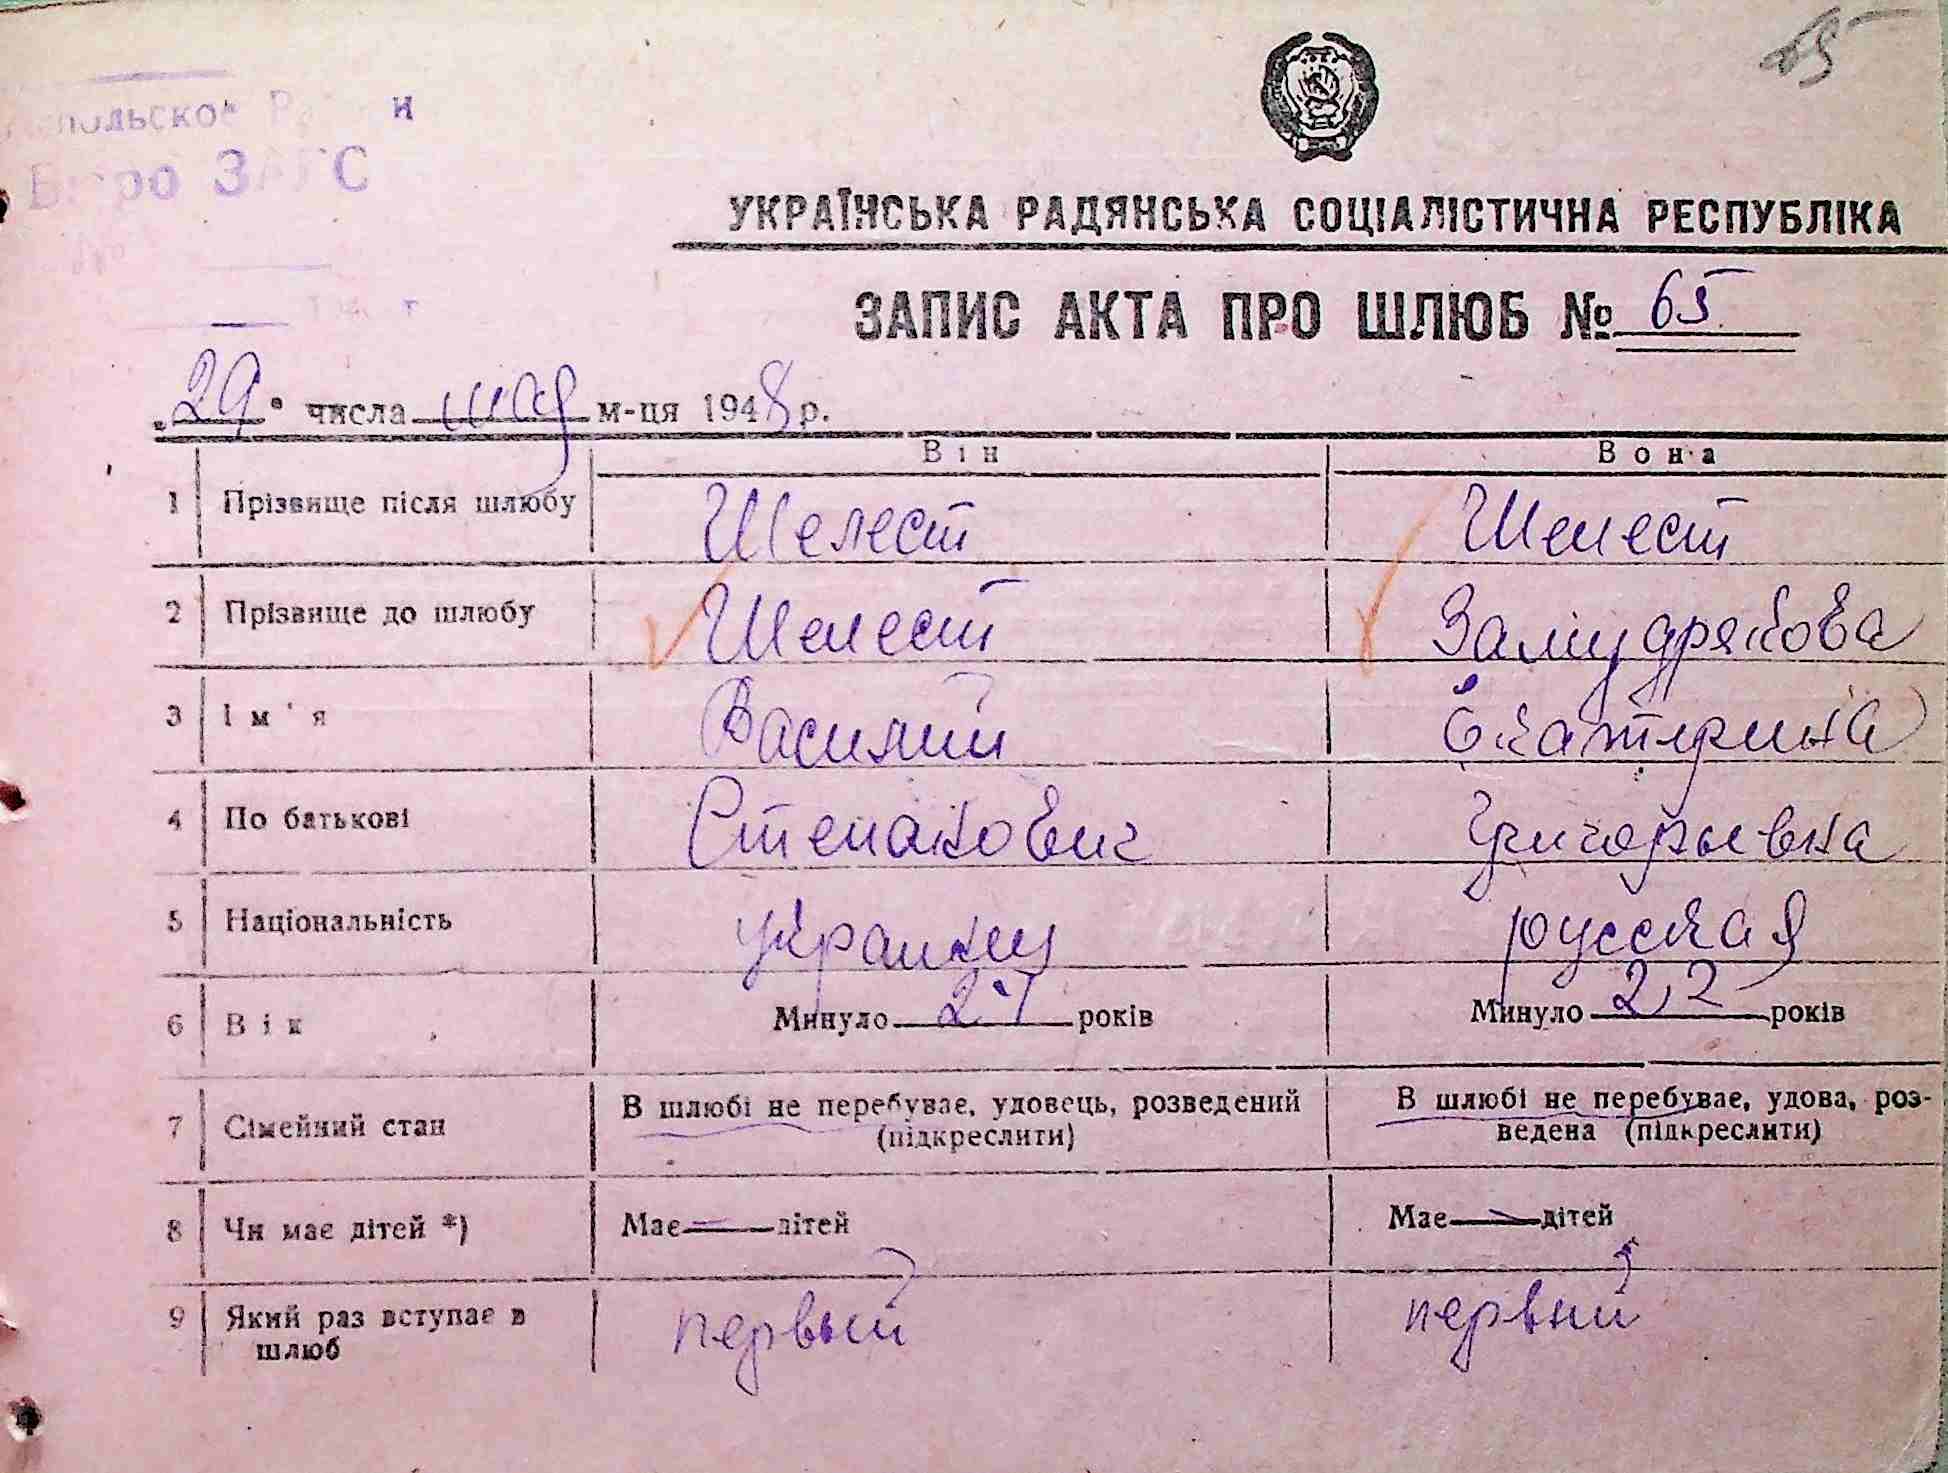 65
Бюро ЗАГС
УКРАЇНСЬКА РАДЯНСЬКА СОЦІАЛІСТИЧНА РЕСПУБЛІКА
ЗАПИС АКТА ПРО ШЛЮБ № 65
„29" числа мая м-ця 1948 р.
Він Вона
1 Прізвище після шлюбу Шелест Шелест
2 Прізвище до шлюбу Шелест Замудрякова
3 Ім'я Василий Екатерина
4 По батькові Степанович Григорьевна
5 Національність украинец русская
6 Вік Минуло 27 років Минуло 22 років
7 Сімейний стан В шлюбі не перебуває, удовець, розведений (підкреслити) В шлюбі не перебуває, удова, роз-
ведена (підкреслити)
8 Чи має дітей *) Має — дітей Має — дітей
9 Який раз вступає в первый первый
шлюб